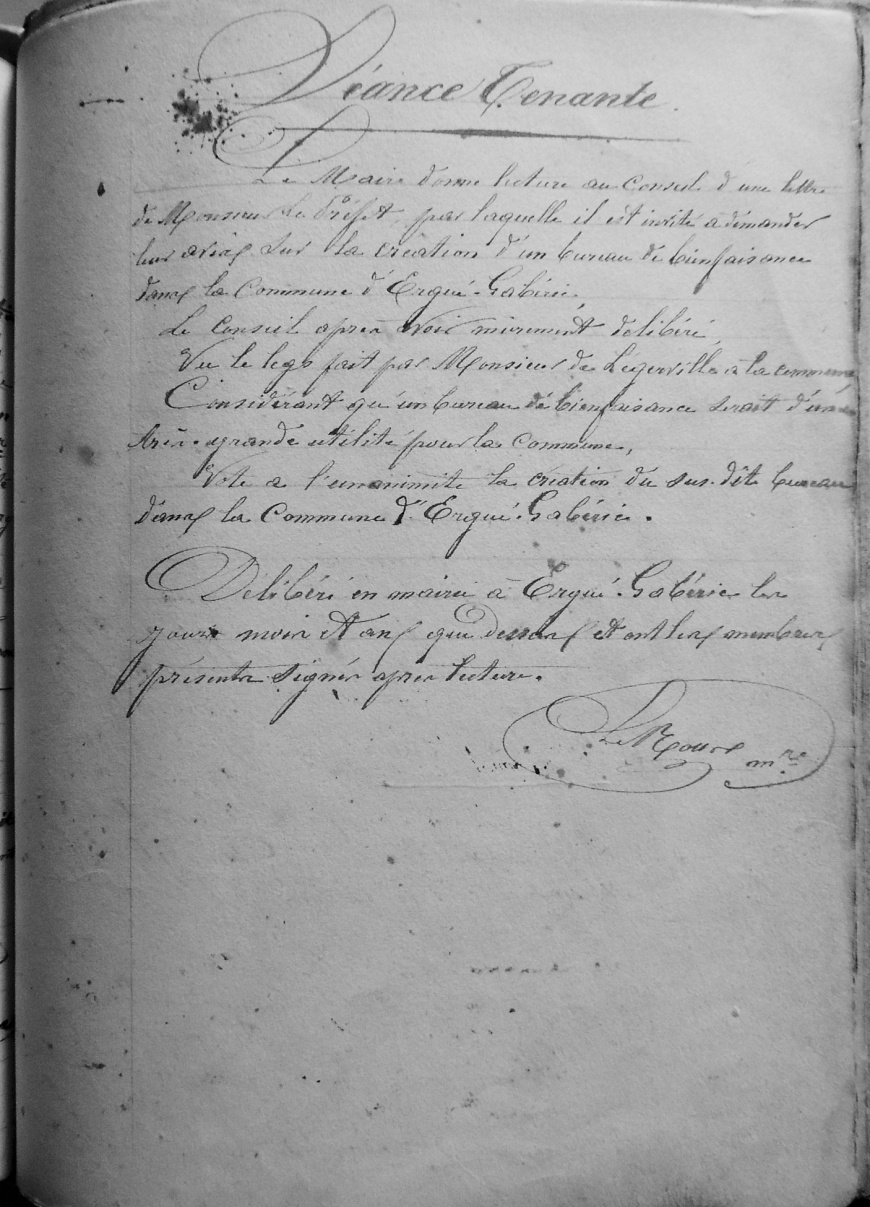 Séance Tenante.
Le Maire donne lecture au Conseil d'une lettre
de Monsieur Le Préfet, par laquelle il est invité à demander
leur avis sur la création d'un bureau de bienfaisance
dans la Commune d'Ergué-Gabéric,
Le Conseil après avoir mûrement délibéré,
Vu le legs fait par Monsieur de Légerville à la commune,
Considérant qu'un bureau de bienfaisance serait d'une
très-grande utilité pour la commune,
Vote a l'unanimité la création du sus-dit bureau
dans la Commune d'Ergué-Gabéric.
Délibéré en mairie à Ergué-Gabéric les
jours mois et ans que dessus et ont les membres
présents signés après lecture.
Le Roux mre